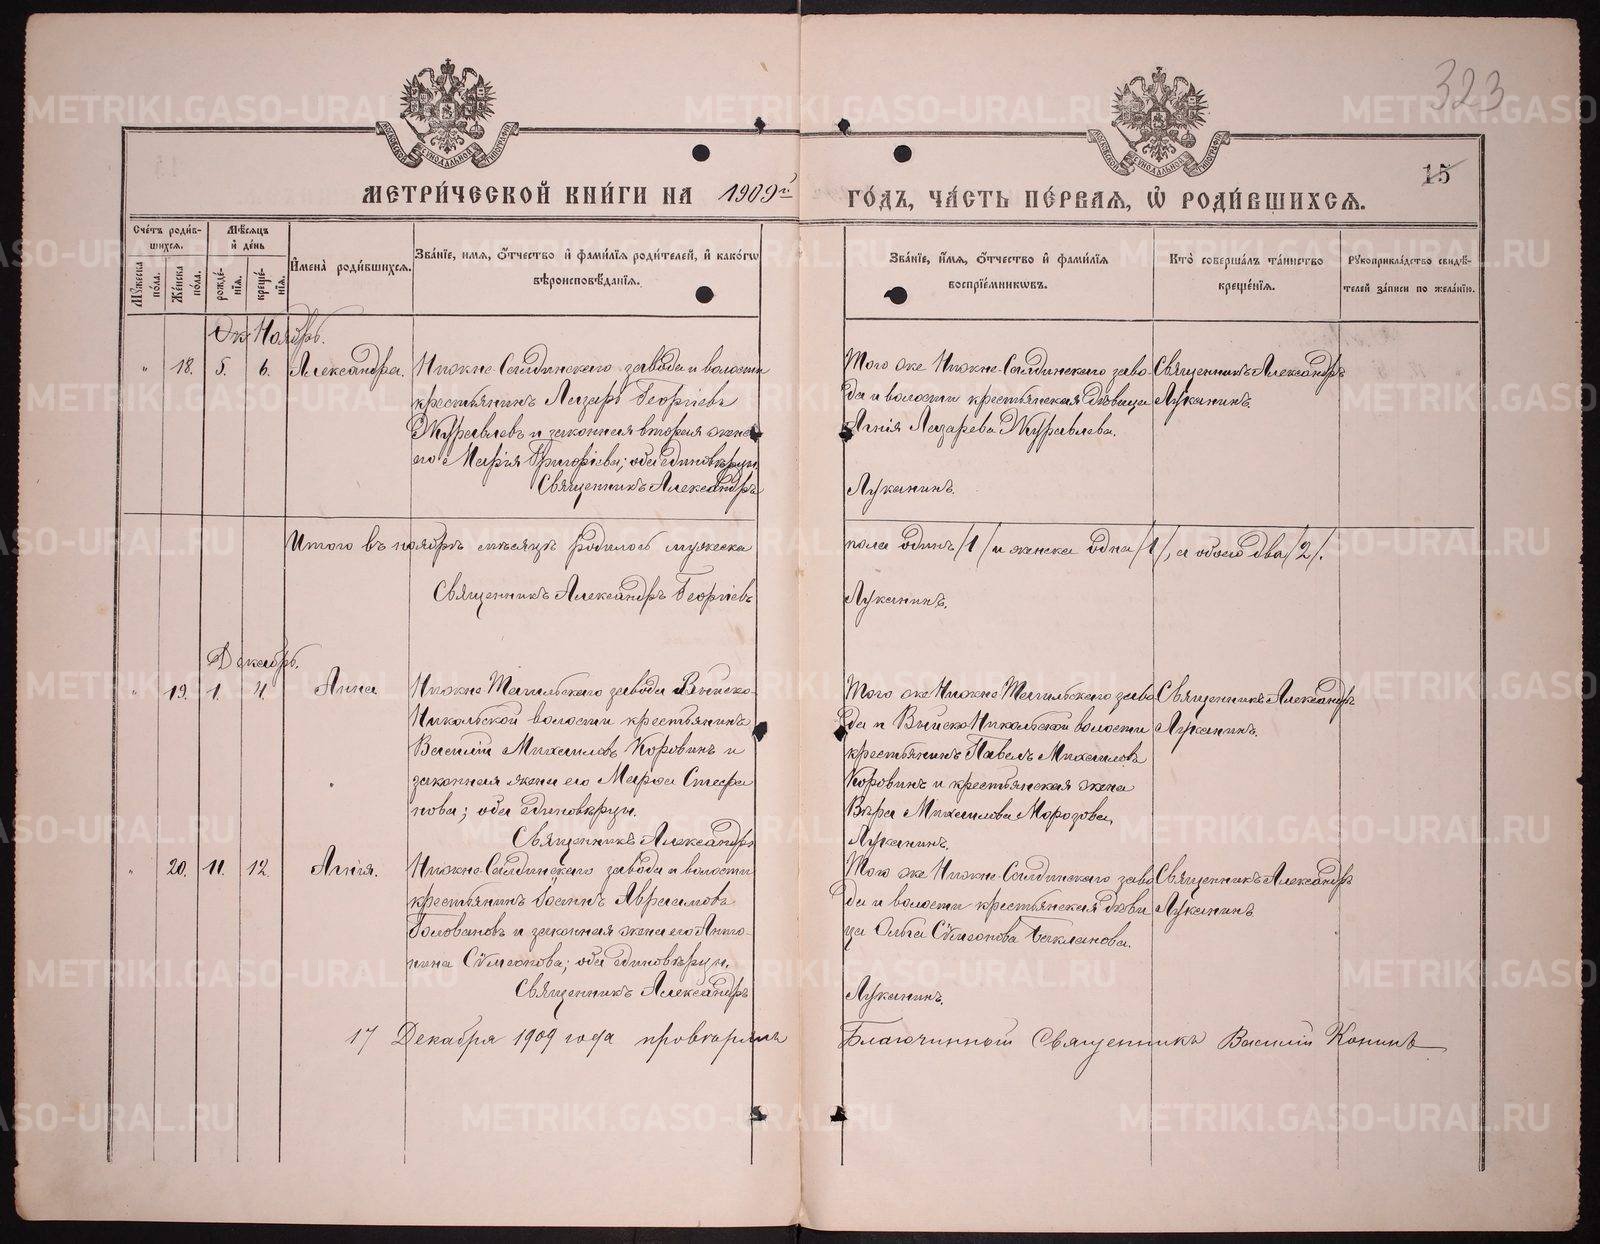 323
15
МЕТРИ́ЧЕСКОЙ КНИ́ГИ НА 1909й ГО́ДЪ, ЧА́СТЬ ПЕ́РВАЯ, Ѡ҆ РОДИ́ВШИХСЯ.
Сче́тъ роди́вшихся.
Мѣ́сяцъ и҆ де́нь
Мꙋжеска по́ла.
Же́нска по́ла.
рожде́нїя.
креще́нїя.
И҆мена̀ роди́вшихся.
Зва́нїе, имя, ѻ҆́тчество и҆ фами́лїя роди́телей, и҆ како́гѡ вѣроисповѣ́данїя.
Зва́нїе, и҆́мя, ѻ҆́тчество и҆ фами́лїя воспрїе́мникѡвъ.
Кто̀ соверша́лъ та́инство креще́нїя.
Рꙋкоприкла́дство свидѣ́телей за́писи по жела́нїю.
Ноябрь.
" 18. 5. 6. Александра.
Нижне-Салдинскаго завода и волости
крестьянинъ Лазарь Георгіевъ
Журавлевъ и законная вторая жена
его Марія Григоріева; оба единовѣрцы
Священникъ Александръ
Того же Нижне-Салдинскаго заво
да и волости крестьянская дѣвица
Агнія Лазарева Журавлева.
Луканинъ.
Священникъ Александръ
Луканинъ.
Итого въ ноябрѣ мѣсяцѣ родилось мужеска
пола одинъ /1/ и женска одна /1/, а обоего два /2/.
Священникъ Александръ Георгіевъ
Луканинъ.
Декабрь.
" 19. 1. 4. Анна
Нижне-Тагильскаго завода Выйско-
Никольской волости крестьянинъ
Василій Михаиловъ Коровинъ и
законная жена его Марѳа Стефа
нова; оба единовѣрцы.
Священникъ Александръ
Того же Нижне-Тагильскаго заво
да и Выйско-Никольской волости
крестьянинъ Павелъ Михаиловъ
Коровинъ и крестьянская жена
Вѣра Михаилова Морозова,
Луканинъ.
Священникъ Александръ
Луканинъ.
" 20. 11. 12. Агнія.
Нижне-Салдинскаго завода и волости
крестьянинъ Іоаннъ Авраамовъ
Головановъ и законная жена его Анто-
нина Сѵмеонова; оба единовѣрцы.
Священникъ Александръ
Того же Нижне-Салдинскаго заво
да и волости крестьянская дѣви
ца Ольга Сѵмеонова Бакланова.
Луканинъ.
Священникъ Александръ
Луканинъ
17 Декабря 1909 года провѣрялъ Благочинный Священникъ Василій Конинъ